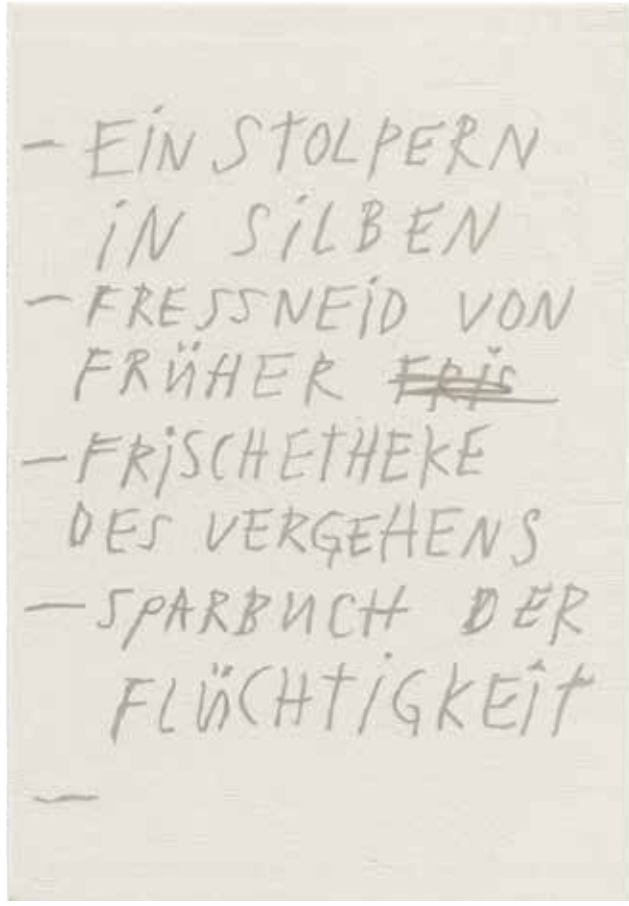 – EIN STOLPERN
IN SILBEN
– FRESSNEID VON
FRÜHER ~~FRIS~~
– FRISCHETHEKE
DES VERGEHENS
– SPARBUCH DER
FLÜCHTIGKEIT
–